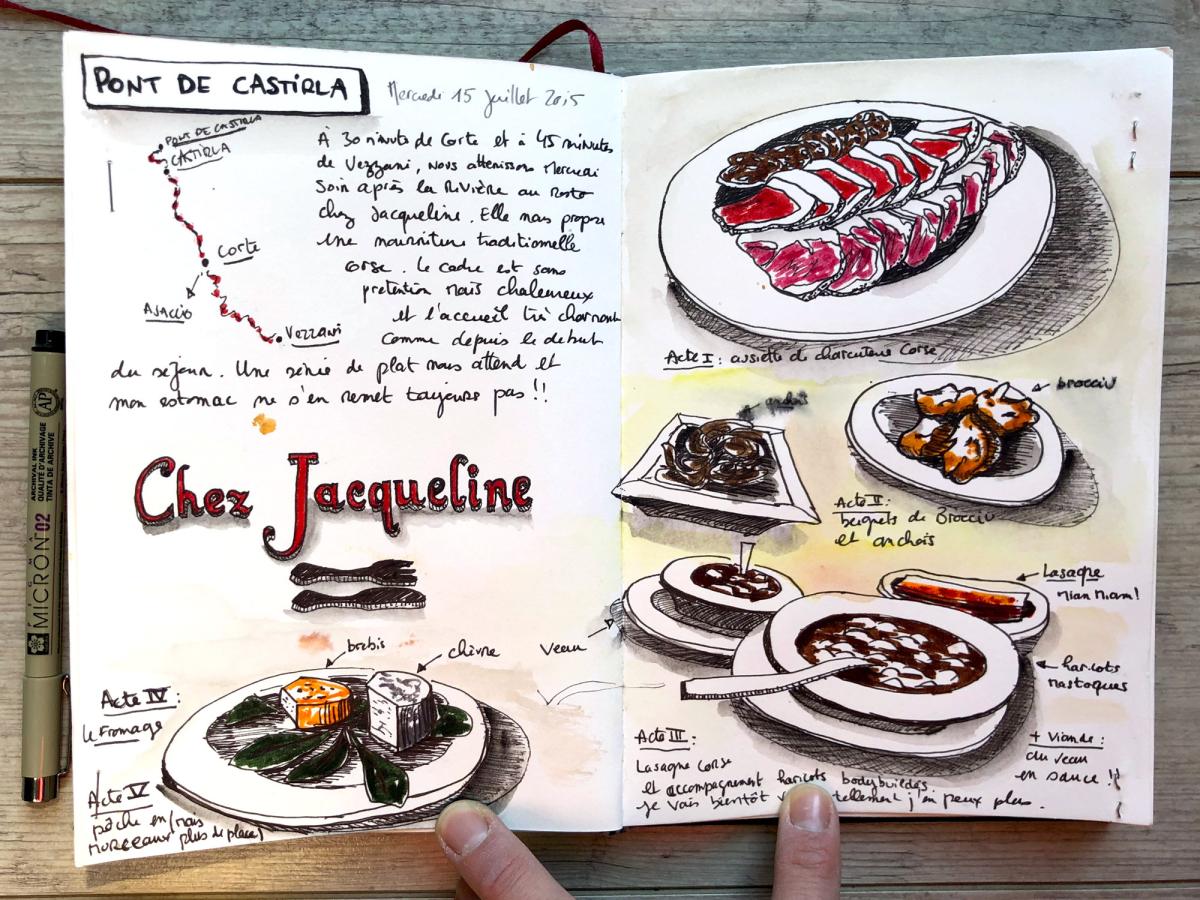 PONT DE CASTIRLA
Mercredi 15 Juillet 2015
PONT DE CASTIRLA
CASTIRLA
Corte
AJACCIO
Vezzani
À 30 minutes de Corte et à 45 minutes
de Vezzani, nous atterrissons Mercredi
Soir après la Rivière au Resto
chez Jacqueline. Elle nous propose
une nourriture traditionnelle
corse. Le cadre est sans
pretention mais chaleureux
et l'accueil très charmant
comme depuis le debut
du séjour. Une série de plat nous attend et
mon estomac ne s'en remet toujours pas !!
Chez Jacqueline
brebis
chèvre
Acte IV :
le Fromage
Acte V
pêche en (mais
morceaux plus de place)
Acte I : assiette de charcuterie Corse
brocciu
Acte II :
beignets de Brocciu
et anchois
Lasagne
Miam Miam!
Veau
haricots
mastoques
Acte III :
Lasagne Corse
et accompagnement haricots bodybuildés.
Je vais bientôt tellement j'en peux plus.
+ Viande :
du veau
en sauce !!
MICRON 02
ARCHIVAL INK
QUALITÉ D'ARCHIVAGE
TINTA DE ARCHIVE
AP